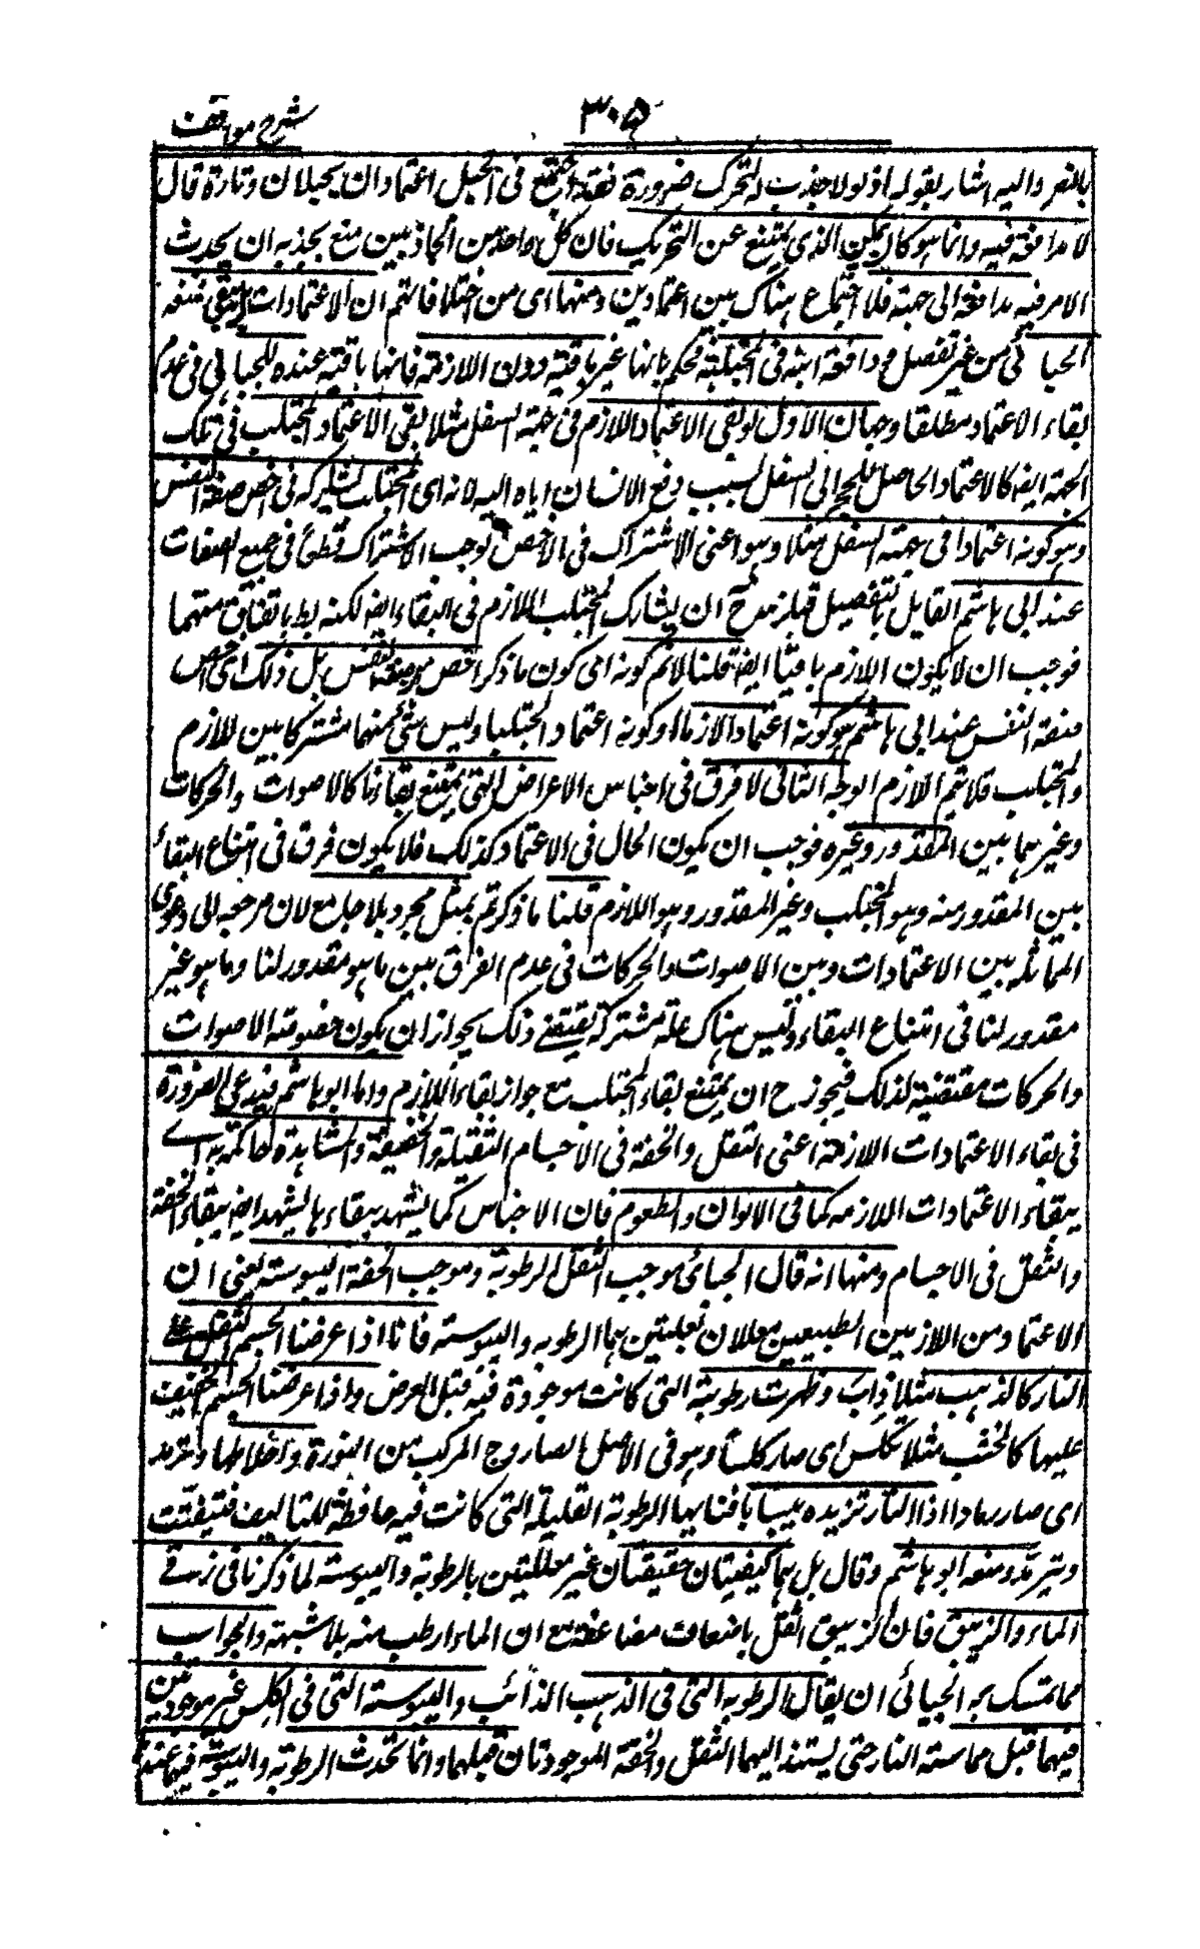 شرح مواقف
۳۰۵
بالنصر واليه اشار بقوله اذ لولا جذب له لتحرك ضرورة فقد اجتمع فى الحبل اعتمادان بحيلان وتارة قال
لا مدافعة فيه وانما هو كالساكن الذى يمتنع عن التحريك فان كل واحد من الجاذبين منع بجذبه ان يحدث
الامر فيه مدافعة الى جهة فلا اجتماع هناك بين اعتمادين ومنها اى من اختلافاتهم ان الاعتمادات هل تبقى فمنعه
الجبائى من غير تفصيل ووافقه ابنه فى المجتلبة فحكم بانها غير باقية دون اللازمة فانها باقية عنده للجبائى فى عدم
بقاء الاعتماد مطلقا وجهان الاول لو بقى الاعتماد اللازم فى جهة السفل مثلا لبقى الاعتماد المجتلب فى تلك
الجهة ايضا كالاعتماد الحاصل للحجر الى السفل بسبب دفع الانسان اياه اليه لانه اى المجتلب يشاركه فى اخص صفة النفس
وهو كونه اعتمادا فى جهة السفل مثلا وهو اعنى الاشتراك فى الاخص يوجب الاشتراك مطلقا فى جميع الصفات
عند ابى هاشم القايل بالتفصيل فيلزمه ح ان يشارك المجتلب اللازم فى البقاء ايضا لكنه بط باتفاق منهما
فوجب ان لا يكون اللازم باقيا ايضا قلنا لا نم كونه اى كون ما ذكر اخص من صفة النفس بل ذلك اى اخص
صفة النفس عند ابى هاشم هو كونه اعتمادا لازما او كونه اعتمادا مجتلبا وليس شئ منهما مشتركا بين اللازم
والمجتلب فلا يتم اللازم الوجه الثانى لا فرق فى اجناس الاعراض التى يمتنع بقاؤها كالاصوات والحركات
وغيرهما بين المقدور وغيره فوجب ان يكون الحال فى الاعتماد كذلك فلا يكون فرق فى امتناع البقاء
بين المقدور منه وهو المجتلب وغير المقدور وهو اللازم قلنا ما ذكرتم تمثيل مجرد بلا جامع لان مرجعه الى دعوى
المماثلة بين الاعتمادات وبين الاصوات والحركات فى عدم الفرق بين ما هو مقدور لنا وما هو غير
مقدور لنا فى امتناع البقاء وليس هناك علة مشتركة يقتضى ذلك بجواز ان يكون خصوصة الاصوات
والحركات مقتضية لذلك فيجوز ح ان يمتنع بقاء المجتلب مع جواز بقاء اللازم واما ابو هاشم فيدعى الضرورة
فى بقاء الاعتمادات اللازمة اعنى الثقل والخفة فى الاجسام الثقيلة والخفيفة والمشاهدة لحاكمة به اے
ببقاء الاعتمادات اللازمه كما فى الالوان والطعوم فان الاجناس كما يشهد ببقاء ها يشهد ايضا ببقاء الخفة
والثقل فى الاجسام ومنها انه قال الجبائى موجب الثقل الرطوبة وموجب الخفة اليبوسة يعنى ان
الاعتمادمن اللازمين الطبيعيين معللان تعليتين هما الرطوبه واليبوسة فانا اذا عرضنا الجسم الثقيل على
النار كالذهب مثلا ذاب وظهرت رطوبته التى كانت موجودة فيه قبل العرض واذا عرضنا الجسم الخفيف
عليها كالخشب مثلا تكلس اى صار كلسا وهو فى الاصل الصاروج المركب من النورة واخلاطها وترمد
اى صار رمادا اذا النار تزيده يبسا بافنائها الرطوبة القليلة التى كانت فيه حافظة للتاليف فتيفتت
وتيرمد ومنعه ابو هاشم وقال بل هما كيفيتان حقيقتان غير معللتين بالرطوبة واليبوسة لما ذكرنا فى زقے
الماء والزيبق فان الزيبق اثقل باضعاف مضاعفة مع ان الماء ارطب منه بلا شبهة والجواب
مما تمسك به الجبائى ان يقال الرطوبه التى فى الذهب الذائب واليبوسة التى فى الكلس غير موجودتين
فيهما قبل مماسة النار حتى يستند اليهما الثقل والخفة الموجودتان قبلهما وانما تحدث الرطوبة واليبوسة فيهما عند